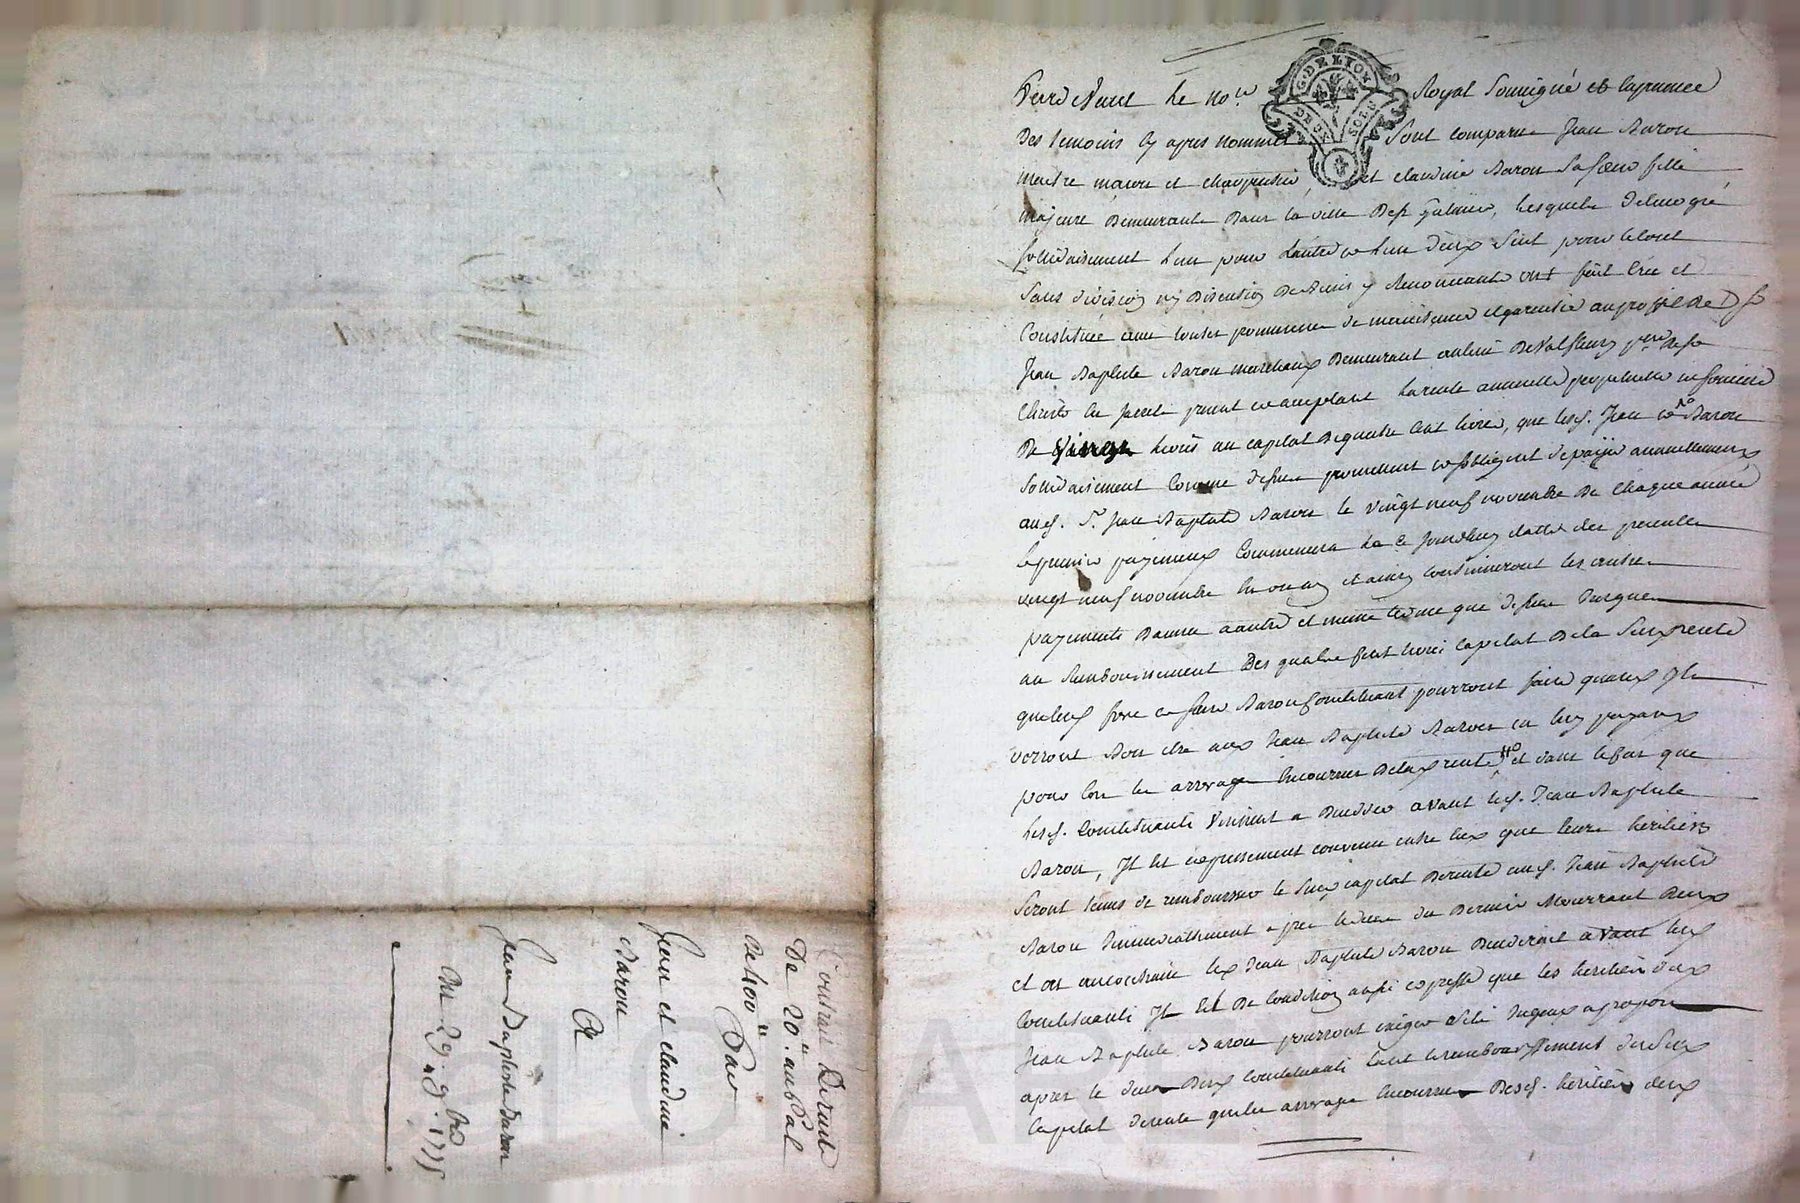 Pardevant Le no.re Royal Soussigné et en presence
Des temoins cy apres nommés Sont comparus Jean Baron
maitre macon et charpentier, et claudine Baron Sa soeur fille
majeure Demeurants Dans la ville De st Galmier, Lesquels De leur gré
solidairement l'un pour l'autre et l'un d'eux seul pour le tout
Sans division ny Discution De Biens y Renoncants ont fait crée et
Constitué avec toutes promesses de maintenue et garentie au proffit De
Jean Baptiste Baron marchand Demeurant au lieu De Valfleury
present et acceptant La rente annuelle perpetuelle et fonciere
De vingt livres au capital De quatre Cent livres, que lesd. Jean et Baron
Solidairement Comme dessus promettent et s'obligent de payer annuellement
aud. Sr. Jean Baptiste Baron le vingt neuf novembre De Chaque année
le premier payement Commencera De ce jourdhuy datte des presentes
vingt neuf novembre en un an et ainsy continueront les autres
payements D'année a autre et meme terme que dessus Jusques
au Remboursement Des quatre Cent livres Capital De la Susd. rente
que lesd. frere et soeur Baron Constituants pourront faire quand Ils
verront Bon etre aud. Jean Baptiste Baron en luy payant
pour lors les arrerages Encourus De lad. rente et dans le cas que
Lesd. Constituants Vinssent a Deceder avant led. Jean Baptiste
Baron, Il est expressement convenu entre Eux que leurs heritiers
Seront tenus de rembourser le Susd. capital De rente aud. Jean Baptiste
Baron Immediatement apres le deces du Dernier Mourrant D'eux
et ou au contraire led. Jean Baptiste Baron Decederoit avant lesd.
Constituants Il Est De Condition aussi expresse que les heritiers dud.
Jean Baptiste Baron pourront exiger s'ils Jugent a propos
apres le deces Desd. Constituants tout le remboursement dud.
Capital de rente que les arrerages Encourus Desd. heritiers d'eux
Contrat De rente
De 20.ll au Pal
De 400.ll Par
Jean et claudine
Baron
A
Jean Baptiste Baron
Du 29. 9bre 1775
G. DE LION
DEUX SOLS